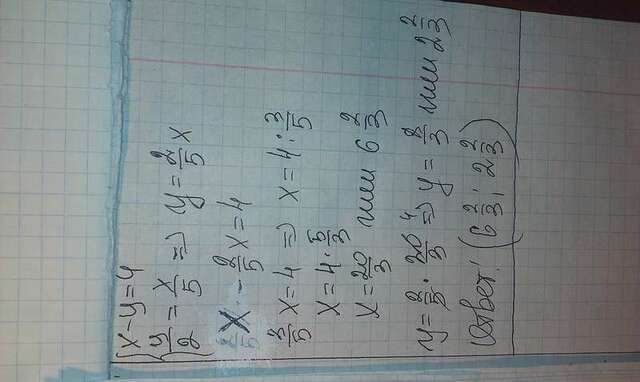 {x-y=4
{y/2=x/5 => y=2/5 x
x-2/5 x=4
3/5 x=4 => x=4:3/5
x=4·5/3
x=20/3 или 6 2/3
y=2/5·20/3 4 => y=8/3 или 2 2/3
Ответ: (6 2/3; 2 2/3)